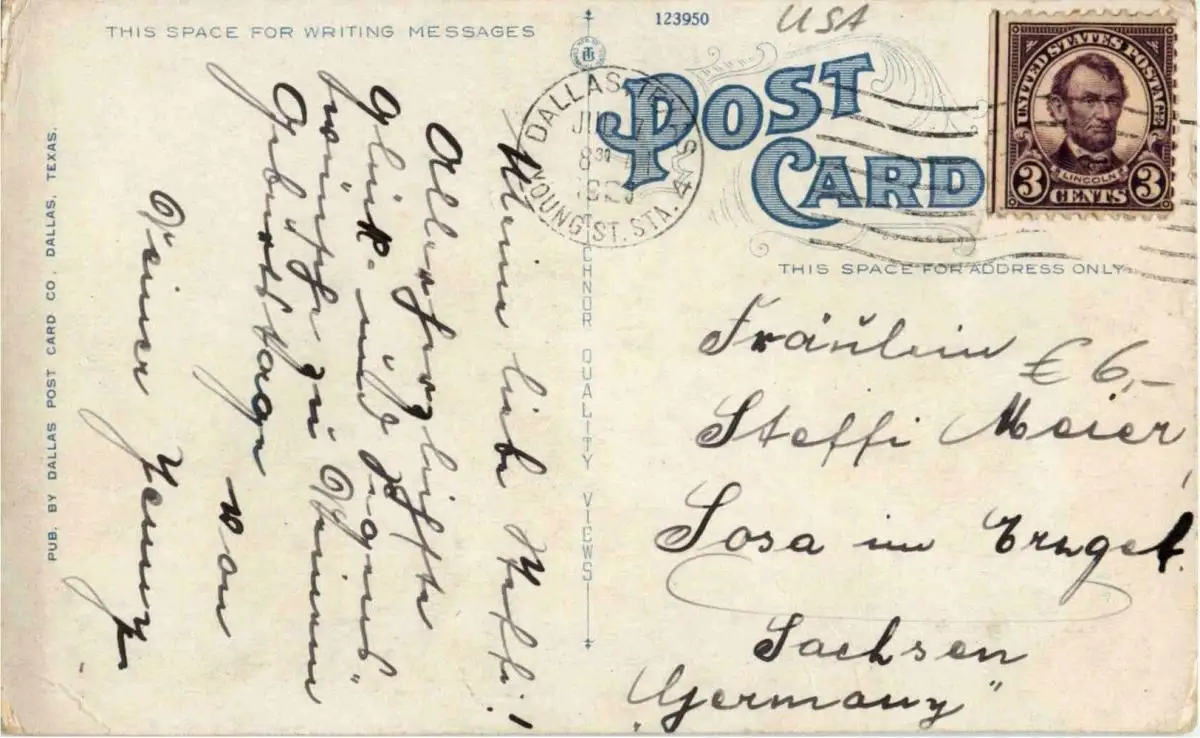 THIS SPACE FOR WRITING MESSAGES
Meine liebe Steffi!
Allerherzlichste
Glück- und Segens"
wünsche zu Deinem
Geburtstage
von
Deiner Jenny
PUB. BY DALLAS POST CARD CO. DALLAS, TEXAS.
CHNOR QUALITY VIEWS
123950
USA
POST
CARD
DALLAS, TEXAS
8 30
YOUNG ST. STA. 4
UNITED STATES POSTAGE
LINCOLN
3 CENTS 3
THIS SPACE FOR ADDRESS ONLY
Fräulein
€ 6,–
Steffi Meier
Sosa im Erzgeb.
Sachsen
„Germany"